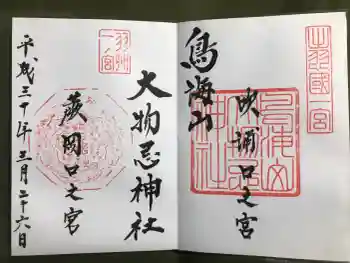 出羽國一宮
鳥海山
吹浦口之宮
羽州一宮
大物忌神社
蕨岡口之宮
平成三十年三月二十六日